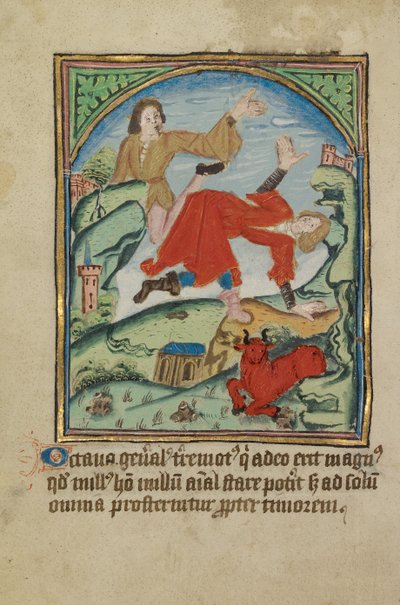 Octava gen̄al' t̄remot' q̄ adeo erit magn'
qd' null' hō nullū aīal stare pot̄it s; ad solū
omnia prosternūtur p̱pter timorem.